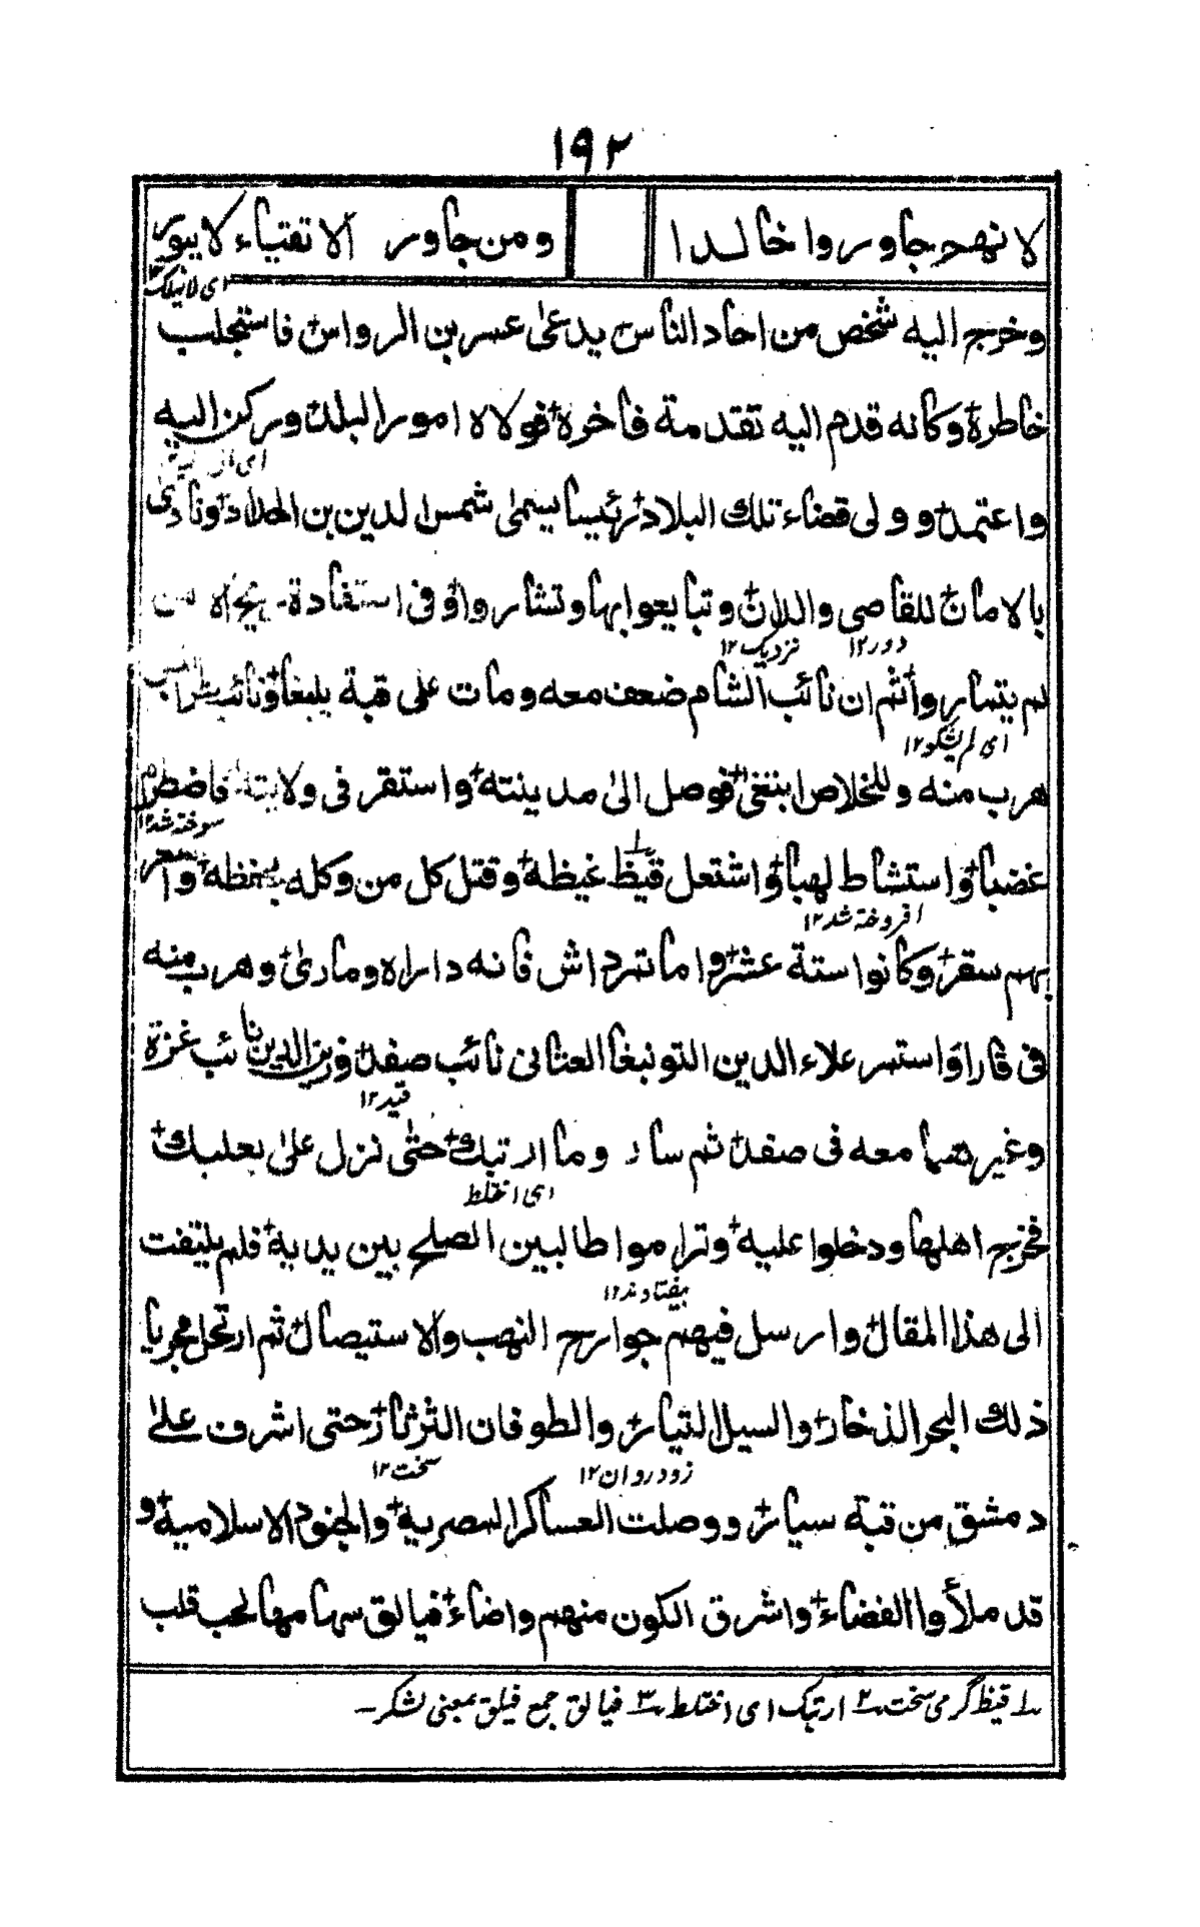 ١٩٢
لانهم جاوروا خالدا ومن جاور الاتقياء لا يبور
ای لا یهلک
وخرج اليه شخص من احاد الناس يدعى عمر بن الرواس فاستجلب
خاطره وكانه قدم اليه تقدمة فاخرة فولاه امور البلد وركن اليه
واعتمد وولى قضاء تلك البلاد رئيسا يسمى شمس الدين بن الحداد ونادى
بالامان للقاصى والدان وتبايعوا بها وتشاروا وفى استفادة من
دور١٢ نزدیک١٢
لم يتمار وأثم ان نائب الشام ضعف معه ومات على قبة يلبغا ونائب طرابلس
ای لم یشکو١٢
هرب منه وللخلاص ابتغى فوصل الى مدينته واستقر فى ولايته فاضطرم
سوخته شد١٢
غضبا واستشاط لهبا واشتعل قيظ غيظه وقتل كل من وكله بحفظه واسعر
افروخته شد١٢
بهم سقر وكانوا ستة عشر واما تمرداش فانه داراه ومارى وهرب منه
فى قارا واستمر علاء الدين التونبغا العثمانى نائب صفد وزين الدين نائب غزة
قید١٢
وغيرهما معه فى صفد ثم سار وما ارتبك حتى نزل على بعلبك
ای اختلط
فخرج اهلها ودخلوا عليه وتراموا طالبين الصلح بين يديه فلم يلتفت
بیفتادند١٢
الى هذا المقال وارسل فيهم جوارح النهب والاستيصال ثم ارتحل مجريا
ذلك البحر الذخار والسيل التيار والطوفان الثرثار حتى اشرف على
زود روان١٢ سخت١٢
دمشق من قبة سيار ووصلت العساكر المصرية والجنود الاسلامية و
قد ملأوا الفضاء واشرق الكون منهم واضاء فيالق سهامها لحب قلب
١ قیظ گرمی سخت ٢ ارتبک ای اختلط ٣ فیالق جمع فیلق بمعنی لشکر-